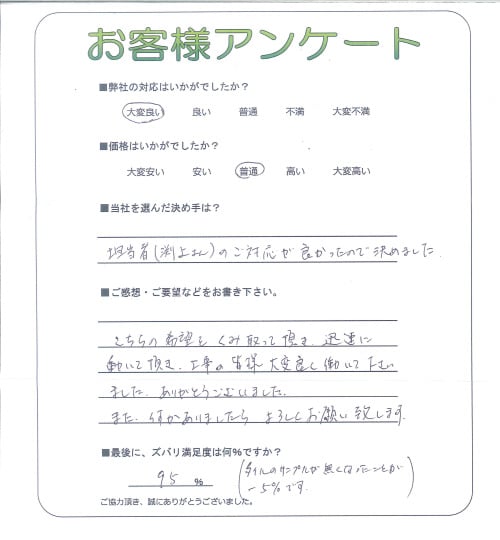 お客様アンケート
■弊社の対応はいかがでしたか?
大変良い 良い 普通 不満 大変不満
■価格はいかがでしたか?
大変安い 安い 普通 高い 大変高い
■当社を選んだ決め手は?
担当者(渕上さん)のご対応が良かったので決めました
■ご感想・ご要望などをお書き下さい。
こちらの希望をくみ取って頂き、迅速に
動いて頂き、工事の皆様大変良く働いて下さい
ました。ありがとうございました。
また、何かありましたらよろしくお願い致します。
■最後に、ズバリ満足度は何%ですか?
95 % (タイルのサンプルが無くなったことが
-5%です。)
ご協力頂き、誠にありがとうございました。